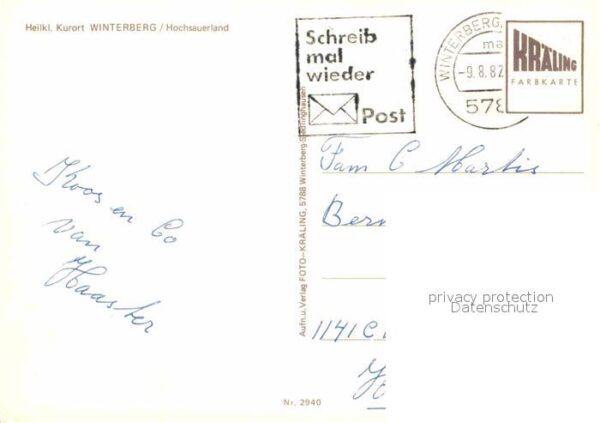 Heilkl. Kurort WINTERBERG / Hochsauerland
Schreib
mal
wieder
Post
WINTERBERG,
-9.8.82
578
KRÄLING
FARBKARTE
Koos en Co
van
Haaster
Aufn.u.Verlag FOTO-KRÄLING, 5788 Winterberg-Siedlinghausen
Fam C Martis
Ber
1141 C
privacy protection
Datenschutz
Nr. 2940